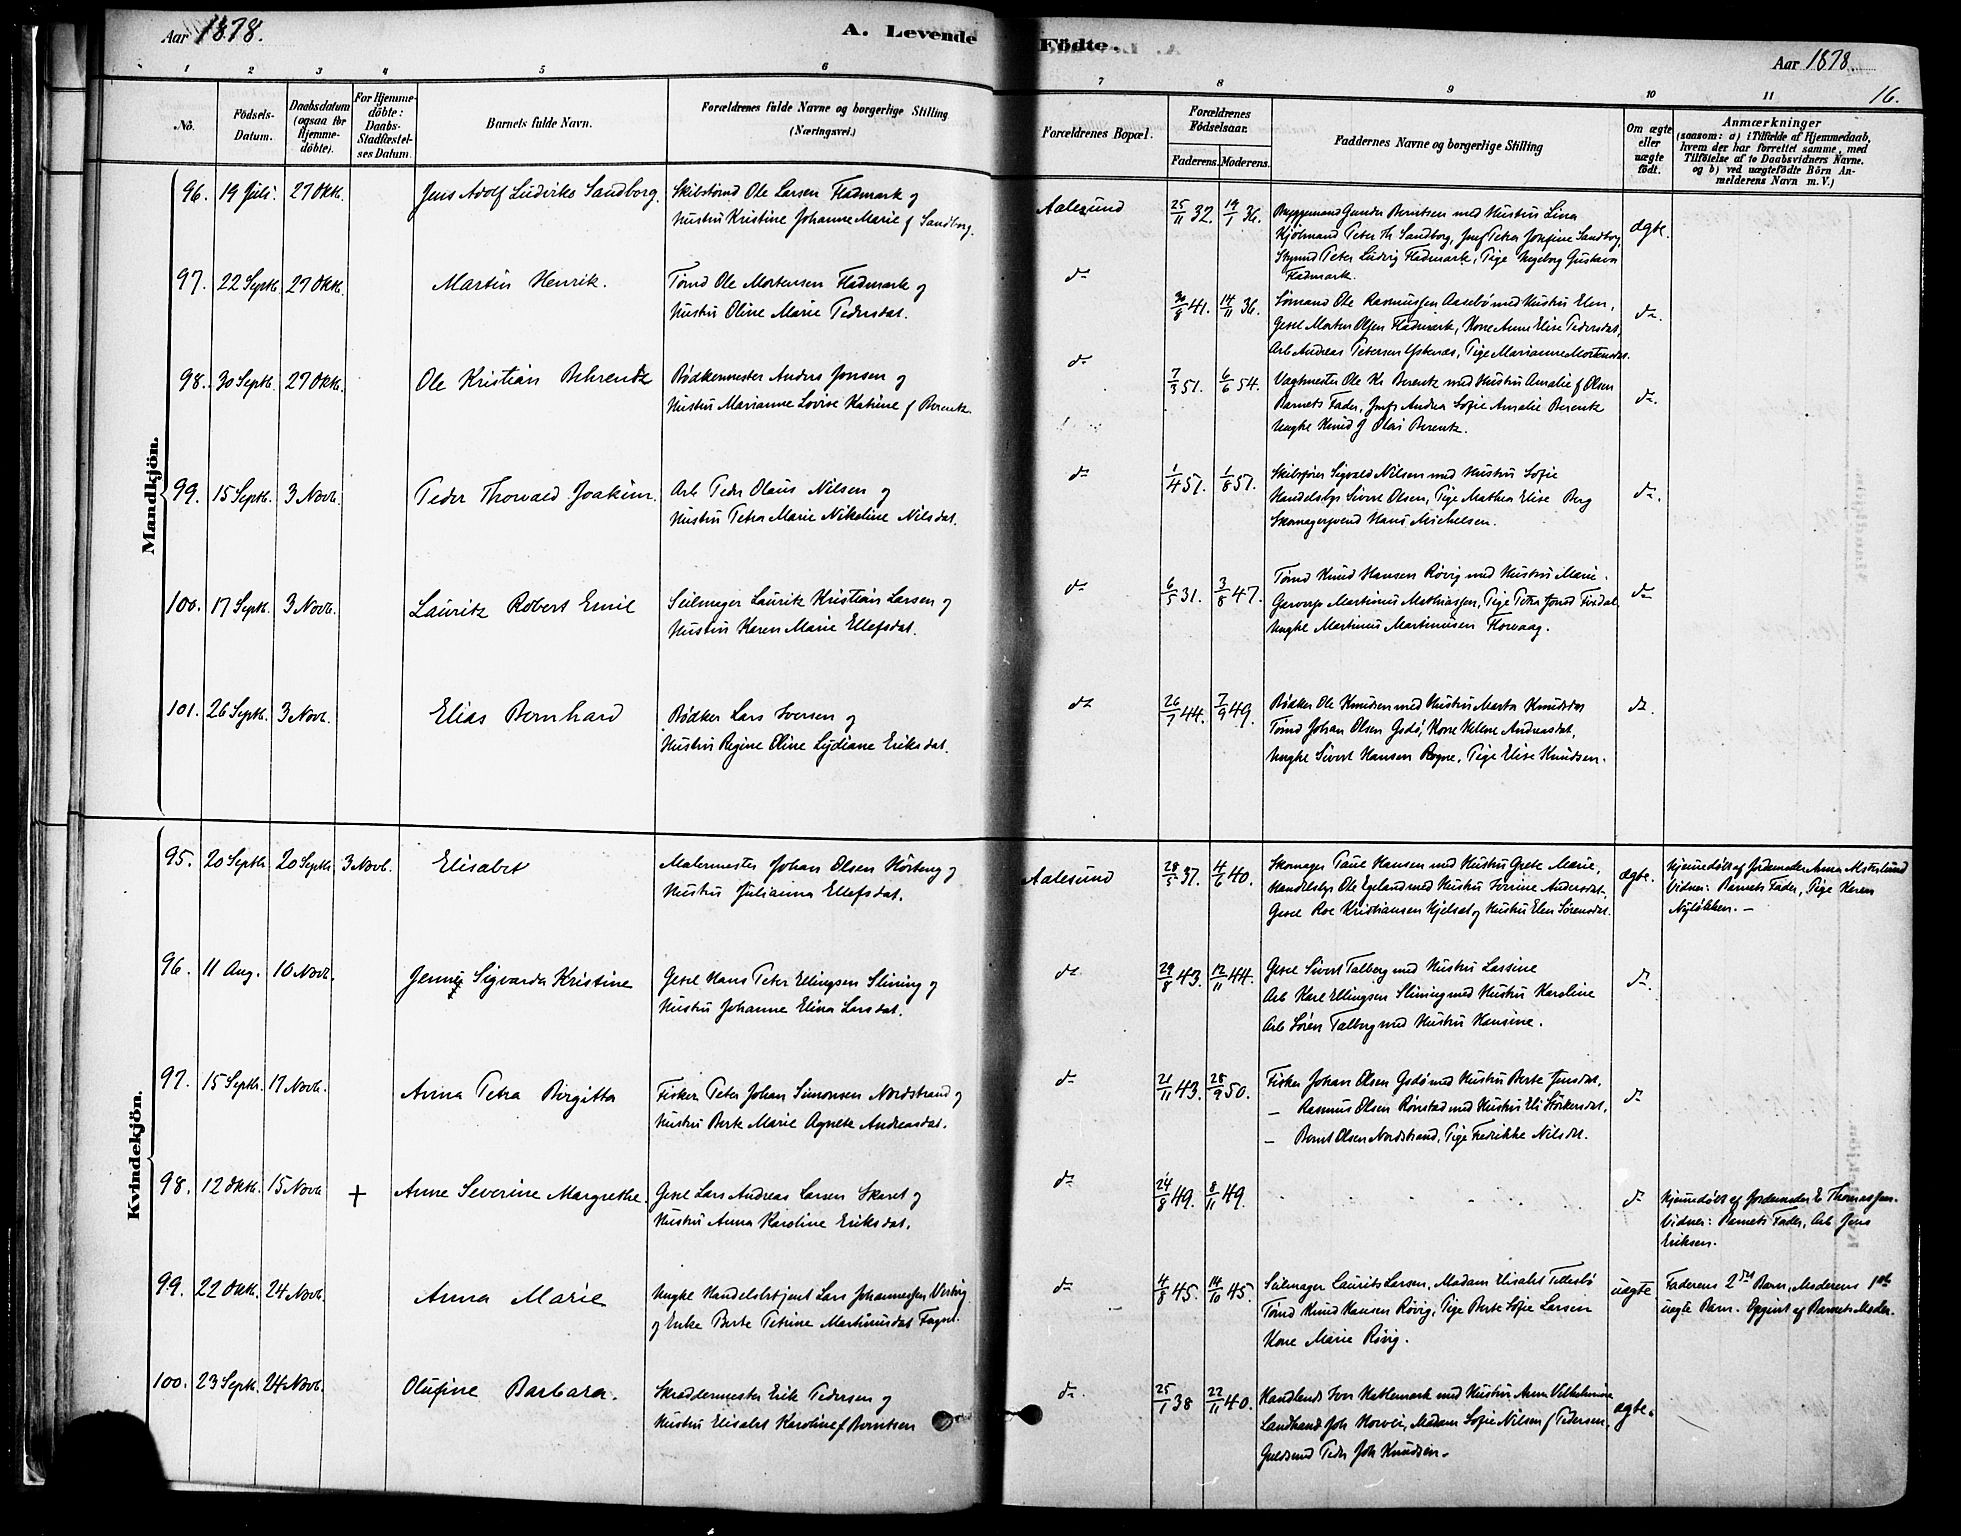 Aar 1878.
A. Levende
Födte.
Aar 1878
16.
1 2 3 4 5 6 7 8 9 10 11
No.
Födsels-
Datum.
Daabsdatum
(ogsaa for
Hjemme-
döbte).
For Hjemme-
döbte:
Daabs-
Stadfæstel-
ses Datum.
Barnets fulde Navn.
Forældrenes fulde Navne og borgerlige Stilling
(Næringsvei.)
Forældrenes Bopæl.
Forældrenes
Födselsaar.
Faderens. Moderens.
Faddernes Navne og borgerlige Stilling
Om ægte
eller
uægte
födt.
Anmærkninger
(saasom: a) i Tilfælde af Hjemmedaab,
hvem der har forrettet samme, med
Tilföielse af to Daabsvidners Navne,
og b) ved uægtefödte Börn An-
melderens Navn m. V.)
Mandkjön.
96. 19 Juli. 27 Oktb. Jens Adolf Ludvike Sandborg.
Skibstømd Ole Larsen Fladmark og
Hustru Kristine Johanne Marie f Sandborg.
Aalesund 25/11 32. 19/7 36.
Bryggemand Gunder Berntsen med Hustru Lina
Peter Th Sandborg, Jmf Petra Josefine Sandborg
Peter Ludvig Fladmark, Pige Ingeborg Gustava
Fladmark.
ægte.
97. 22 Septb. 27 Oktb. Martin Henrik.
Tømd Ole Mortensen Fladmark og
Hustru Oline Marie Pedersdat.
do 30/8 41. 14/11 36.
Sømand Ole Rasmussen Aasebø med Hustru Elen,
Gesel Morten Olsen Fladmark, Kone Anne Elise Pedersdat,
Arb Andreas Petersen Ystenæs, Pige Marianne Mortensdat.
do.
98. 30 Septb. 27 Oktb. Ole Kristian Behrentz
Bødkermester Anders Jonsen og
Hustru Marianne Lovise Katrine f Berentz.
do 7/3 51. 6/6 54.
Vagtmester Ole Kr Berentz med Hustru Amalie f Olsen
Barnets Fader, Jmfr Andrea Sofie Amalie Berentz
Ungke Knud J Olai Berentz.
do.
99. 15 Septb. 3 Novb. Peder Thorvald Joakim.
Arb Peder Olaus Nilsen og
Hustru Petra Marie Nikoline Nilsdat.
do 1/4 51. 1/8 51.
Skibsfører Sigvald Nilsen med Hustru Sofie
Handelsbgr Sivert Olsen, Pige Mathea Elise Berg
Skomagersvend Hans Michelsen.
do.
100. 17 Septb. 3 Novb. Lauritz Robert Emil
Seilmager Lauritz Kristian Larsen og
Hustru Karen Marie Ellefsdat.
do 6/5 31. 3/8 47.
Tømd Knud Hansen Røvig med Hustru Marie.
Garversv Martinus Mathiassen, Pige Petra Jonsd Fixdal
Ungke Martinus Martinusen Florvaag.
do
101. 26 Septb. 3 Novb. Elias Bernhard
Bødker Lars Iversen og
Hustru Regine Oline Lydiane Eriksdat.
do 26/7 44. 7/9 49.
Bødker Ole Knudsen med Hustru Marta Knudsdat
Tømd Johan Olsen Godø, Kone Helene Andreasdat,
Ungke Sivert Hansen Rogne, Pige Elise Knudsen.
do.
Kvindekjön.
95. 20 Septb. 20 Septb. 3 Novb. Elisabet
Malermester Johan Olsen Körteng og
Hustru Julianna Ellefsdat.
Aalesund 28/5 37. 4/6 40.
Skomager Paul Hansen med Hustru Grete Marie,
Handelsbgr Ole Egeland med Hustru Andersdat.
Gesel Roe Kristiansen Kjelset og Hustru Elen Sörensdat.
ægte.
Hjemmedøbt af Jordemoder Anna Msterlund
Vidner: Barnets Fader, Pige Karen
Nyløkken. —
96. 11 Aug. 10 Novb. Jenny Sigvarda Kristine
Gesel Hans Peter Ellingsen Slining og
Hustru Johanne Elina Larsdat.
do 29/8 43. 12/11 44.
Gesel Sivert Talberg med Hustru Lassine
Arb Karl Ellingsen Slining med Hustru Karoline
Arb Sören Talberg med Hustru Hansine.
do.
97. 15 Septb. 17 Novb. Anna Petra Birgitta
Fisker Peter Johan Simonsen Nordstrand og
Hustru Berte Marie Agnete Andreasdat.
do 21/11 43. 28/9 50.
Fisker Johan Olsen Godø med Hustru Berte Jensdat,
— Rasmus Olsen Rønstad med Hustru Eli Störkersdat,
— Bernt Olsen Nordstrand, Pige Fredrikke Nilsdat.
do
98. 12 Oktb. 15 Novb. + Anne Severine Margrethe.
Gesel Lars Andreas Larsen Skaret og
Hustru Anna Karoline Eriksdat.
do 24/8 49. 8/11 49.
do
Hjemmedøbt af Jordemoder E Thomassen.
Vidner: Barnets Fader, Arb Jens
Eriksen.
99. 22 Oktb. 24 Novb. Anna Marie
Ungke Handelsbetjent Lars Johannessen Vestvig
og Enke Berte Petrine Martinusdat Fagset.
do 4/8 45. 14/10 45.
Seilmager Laurits Larsen, Madam Elisabet Tellesbø
Tømd Knud Hansen Røvig, Pige Berte Sofie Larsen
Kone Marie Røvig.
uægte
Faderens 2det Barn, Moderens 1ste
uægte Barn. Opgivet af Barnets Moder.
100. 23 Septb. 24 Novb. Olufine Barbara.
Skrædermester Erik Pedersen og
Hustru Elisabet Karoline f Berntsen
do 25/1 38 22/11 40.
Handlende Iver Katlemark med Hustru Anne Vilhelmine
Landhand Joh Horvei, Madam Sofie Nilsen f Pedersen,
Guldsmd Peder Joh Knudsen.
ægte.